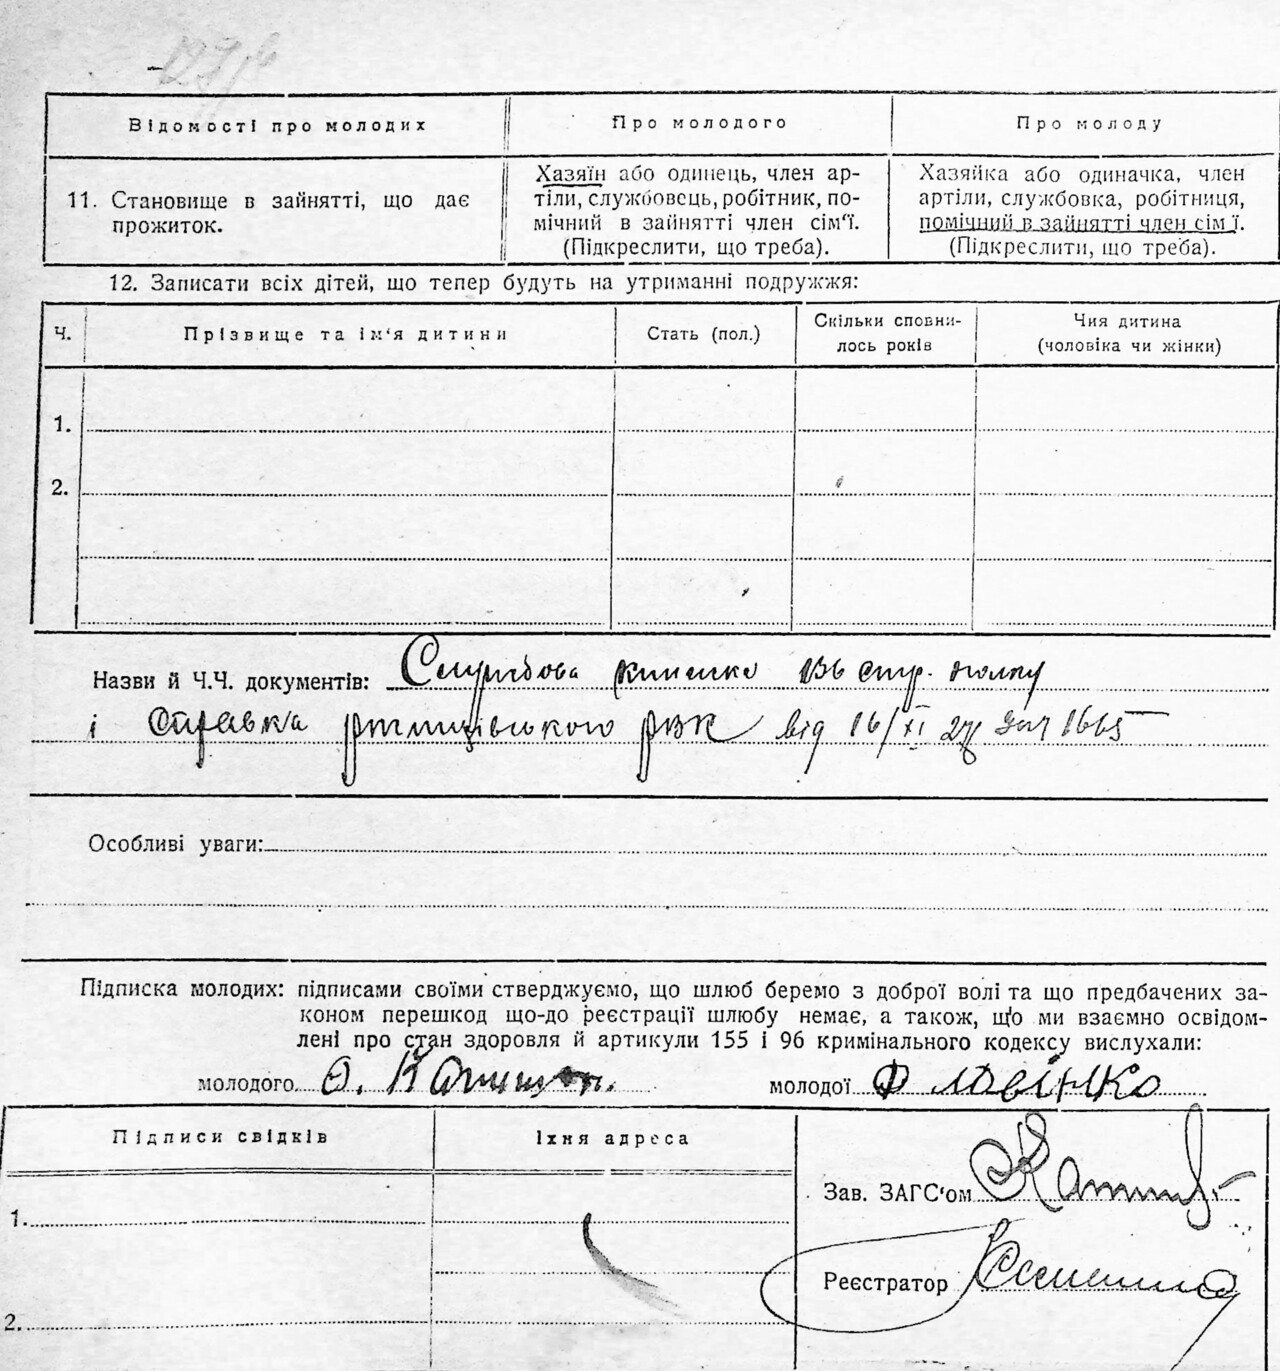 Відомості про молодих
Про молодого
Про молоду
11. Становище в зайнятті, що дає
прожиток.
Хазяїн або одинець, член ар-
тіли, службовець, робітник, по-
мічний в зайнятті член сім'ї.
(Підкреслити, що треба).
Хазяйка або одиначка, член
артіли, службовка, робітниця,
помічний в зайнятті член сім'ї.
(Підкреслити, що треба).
12. Записати всіх дітей, що тепер будуть на утриманні подружжя:
Ч.
Прізвище та ім'я дитини
Стать (пол.)
Скільки сповни-
лось років
Чия дитина
(чоловіка чи жінки)
1.
2.
Назви й Ч.Ч. документів: Службова книжка 136 стр. полку
і справка РВК від 16/XI 27 1665
Особливі уваги:
Підписка молодих: підписами своїми стверджуємо, що шлюб беремо з доброї волі та що предбачених за-
коном перешкод що-до реєстрації шлюбу немає, а також, що ми взаємно освідом-
лені про стан здоровля й артикули 155 і 96 кримінального кодексу вислухали:
молодого
молодої
Підписи свідків
Їхня адреса
Зав. ЗАГС'ом
1.
Реєстратор
2.